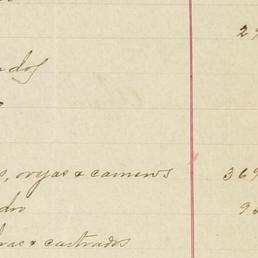 2
dos
s, ovejas & carneros 369
dro 9
bras & castrados